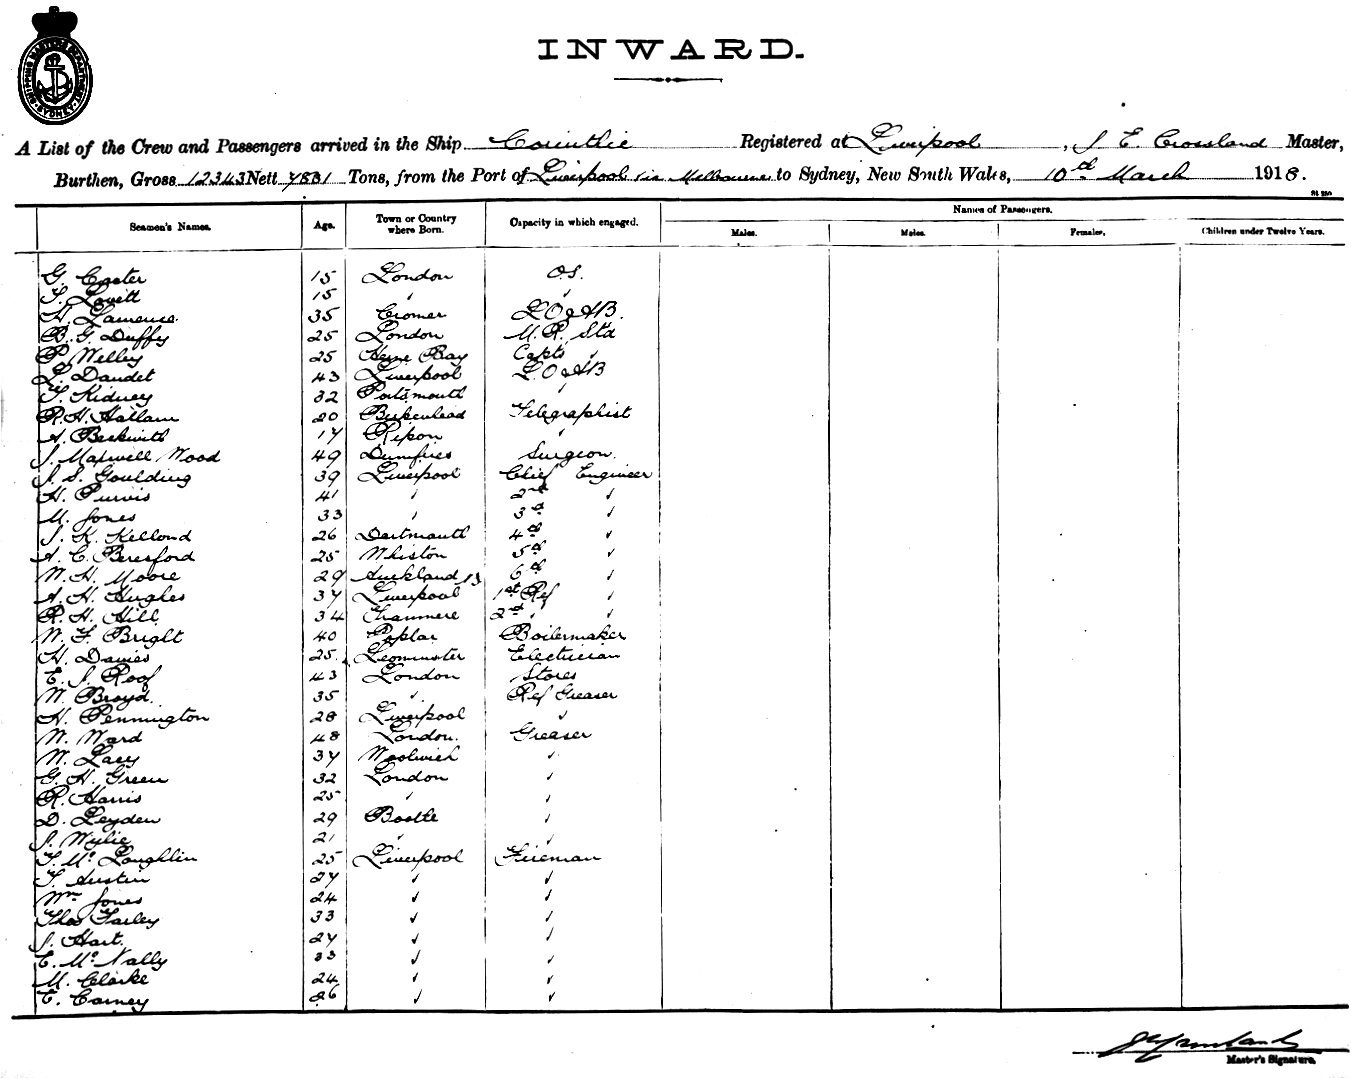 SHIPPING MASTER'S DEPARTMENT SYDNEY
INWARD.
A List of the Crew and Passengers arrived in the Ship Corinthic Registered at Liverpool, J E Crossland Master,
Burthen, Gross 12343 Nett 7881 Tons, from the Port of Liverpool via Melbourne to Sydney, New South Wales, 10th March 1918.
Names of Passengers.
Seamen's Names. Age. Town or Country where Born. Capacity in which engaged. Males. Males. Females. Children under Twelve Years.
G. Easter 15 London O.S.
T. Lovett 15 " "
H. Lawrence 35 Cromer L O & AB.
B. G. Duffy 25 London M. R. Std
P. Welley 25 Herne Bay Capts "
L. Daudet 43 Liverpool L. O & AB
T. Kidney 32 Portsmouth "
R. H. Hallam 20 Birkenhead Telegraphist
A. Beckwith 17 Ripon "
J. Maxwell Wood 49 Dumfries Surgeon.
J. S. Goulding 39 Liverpool Chief Engineer
H. Purvis 41 " 2nd "
M. Jones 33 " 3rd "
J. K. Kellond 26 Dartmouth 4th "
A. C. Beresford 25 Whiston 5th "
W. H. Moore 29 Auckland 6th "
A. H. Hughes 37 Liverpool 1st Ref "
R. H. Hill 34 Tranmere 2nd " "
W. F. Bright 40 Poplar Boilermaker
H. Davies 25. Leominster Electrician
E. J. Roof 43 London Stores
W. Broyd. 35 " Ref Greaser
H. Pennington 28 Liverpool "
W. Ward 48 London. Greaser
W. Lacey 37 Woolwich "
G. H. Green 32 London "
R. Harris 25 " "
D. Leyden 29 Bootle "
J. Wylie 21 " "
T. McLoughlin 25 Liverpool Fireman
T. Austin 27 " "
Wm Jones 24 " "
Thos Farley 33 " "
J. Hart. 27 " "
E. McNally 33 " "
M. Clarke 24 " "
E. Carney 26 " "
Master's Signature.